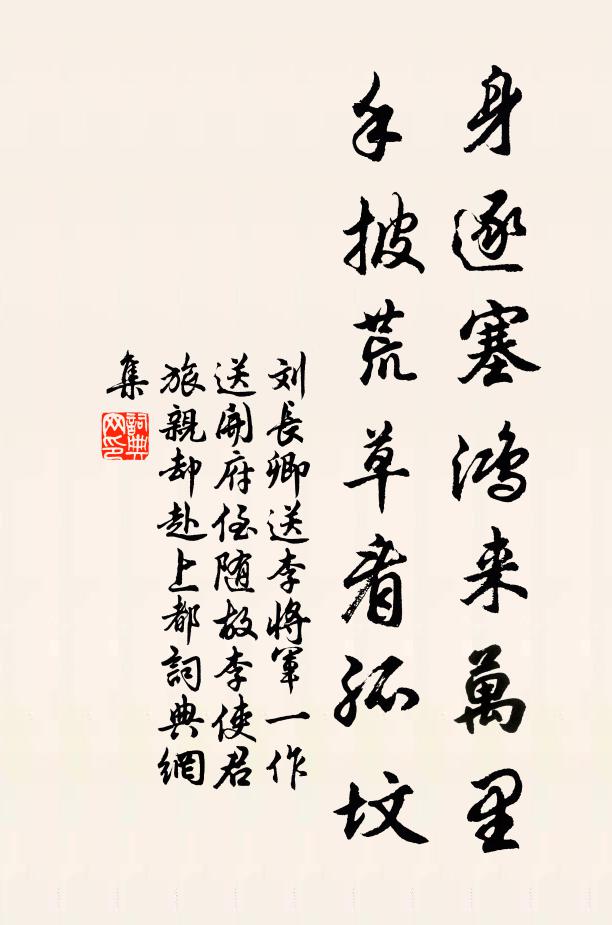 身逐塞鸿来萬里
手披荒草看孤坟
刘長卿送李将軍一作
送開府侄随故李使君
旅親却赴上都詞典網
集
詞典网印